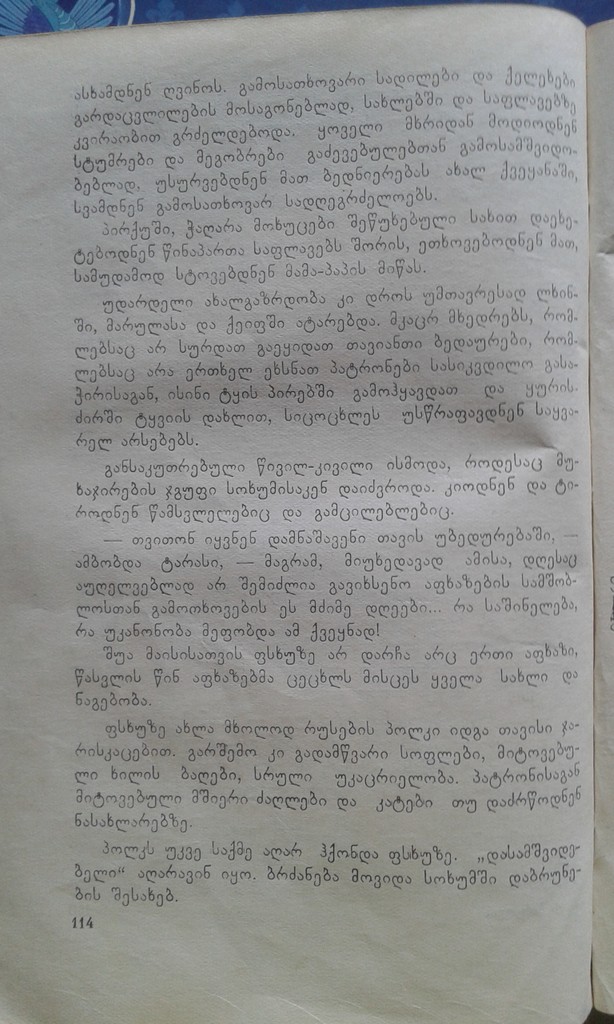 ასხამდნენ ღვინოს. გამოსათხოვარი სადილები და ქელეხები
გარდაცვლილების მოსაგონებლად, სახლებში და საფლავებზე
კვირაობით გრძელდებოდა. ყოველი მხრიდან მოდიოდნენ
სტუმრები და მეგობრები გაძევებულებთან გამოსამშვიდო-
ბებლად, უსურვებდნენ მათ ბედნიერებას ახალ ქვეყანაში,
სვამდნენ გამოსათხოვარ სადღეგრძელოებს.
პირქუში, ჭაღარა მოხუცები შეწუხებული სახით დაეხე-
ტებოდნენ წინაპართა საფლავებს შორის, ეთხოვებოდნენ მათ,
სამუდამოდ სტოვებდნენ მამა-პაპის მიწას.
უდარდელი ახალგაზრდობა კი დროს უმთავრესად ლხინ-
ში, მარულასა და ქეიფში ატარებდა. მკაცრ მხედრებს, რომ-
ლებსაც არ სურდათ გაეყიდათ თავიანთი ბედაურები, რომ-
ლებსაც არა ერთხელ ეხსნათ პატრონები სასიკვდილო გასა-
ჭირისაგან, ისინი ტყის პირებში გამოჰყავდათ და ყურის
ძირში ტყვიის დახლით, სიცოცხლეს უსწრაფავდნენ საყვა-
რელ არსებებს.
განსაკუთრებული წივილ-კივილი ისმოდა, როდესაც მუ-
ხაჯირების ჯგუფი სოხუმისაკენ დაიძვროდა. კიოდნენ და ტი-
როდნენ წამსვლელებიც და გამცილებლებიც.
— თვითონ იყვნენ დამნაშავენი თავის უბედურებაში, —
ამბობდა ტარასი, — მაგრამ, მიუხედავად ამისა, დღესაც
აუღელვებლად არ შემიძლია გავიხსენო აფხაზების სამშობ-
ლოსთან გამოთხოვების ეს მძიმე დღეები... რა საშინელება,
რა უკანონობა მეფობდა ამ ქვეყნად!
შუა მაისისათვის ფსხუზე არ დარჩა არც ერთი აფხაზი,
წასვლის წინ აფხაზებმა ცეცხლს მისცეს ყველა სახლი და
ნაგებობა.
ფსხუზე ახლა მხოლოდ რუსების პოლკი იდგა თავისი ჯა-
რისკაცებით. გარშემო კი გადამწვარი სოფლები, მიტოვებუ-
ლი ხილის ბაღები, სრული უკაცრიელობა. პატრონისაგან
მიტოვებული მშიერი ძაღლები და კატები თუ დაძრწოდნენ
ნასახლარებზე.
პოლკს უკვე საქმე აღარ ჰქონდა ფსხუზე. „დასამშვიდე-
ბელი“ აღარავინ იყო. ბრძანება მოვიდა სოხუმში დაბრუნე-
ბის შესახებ.
114